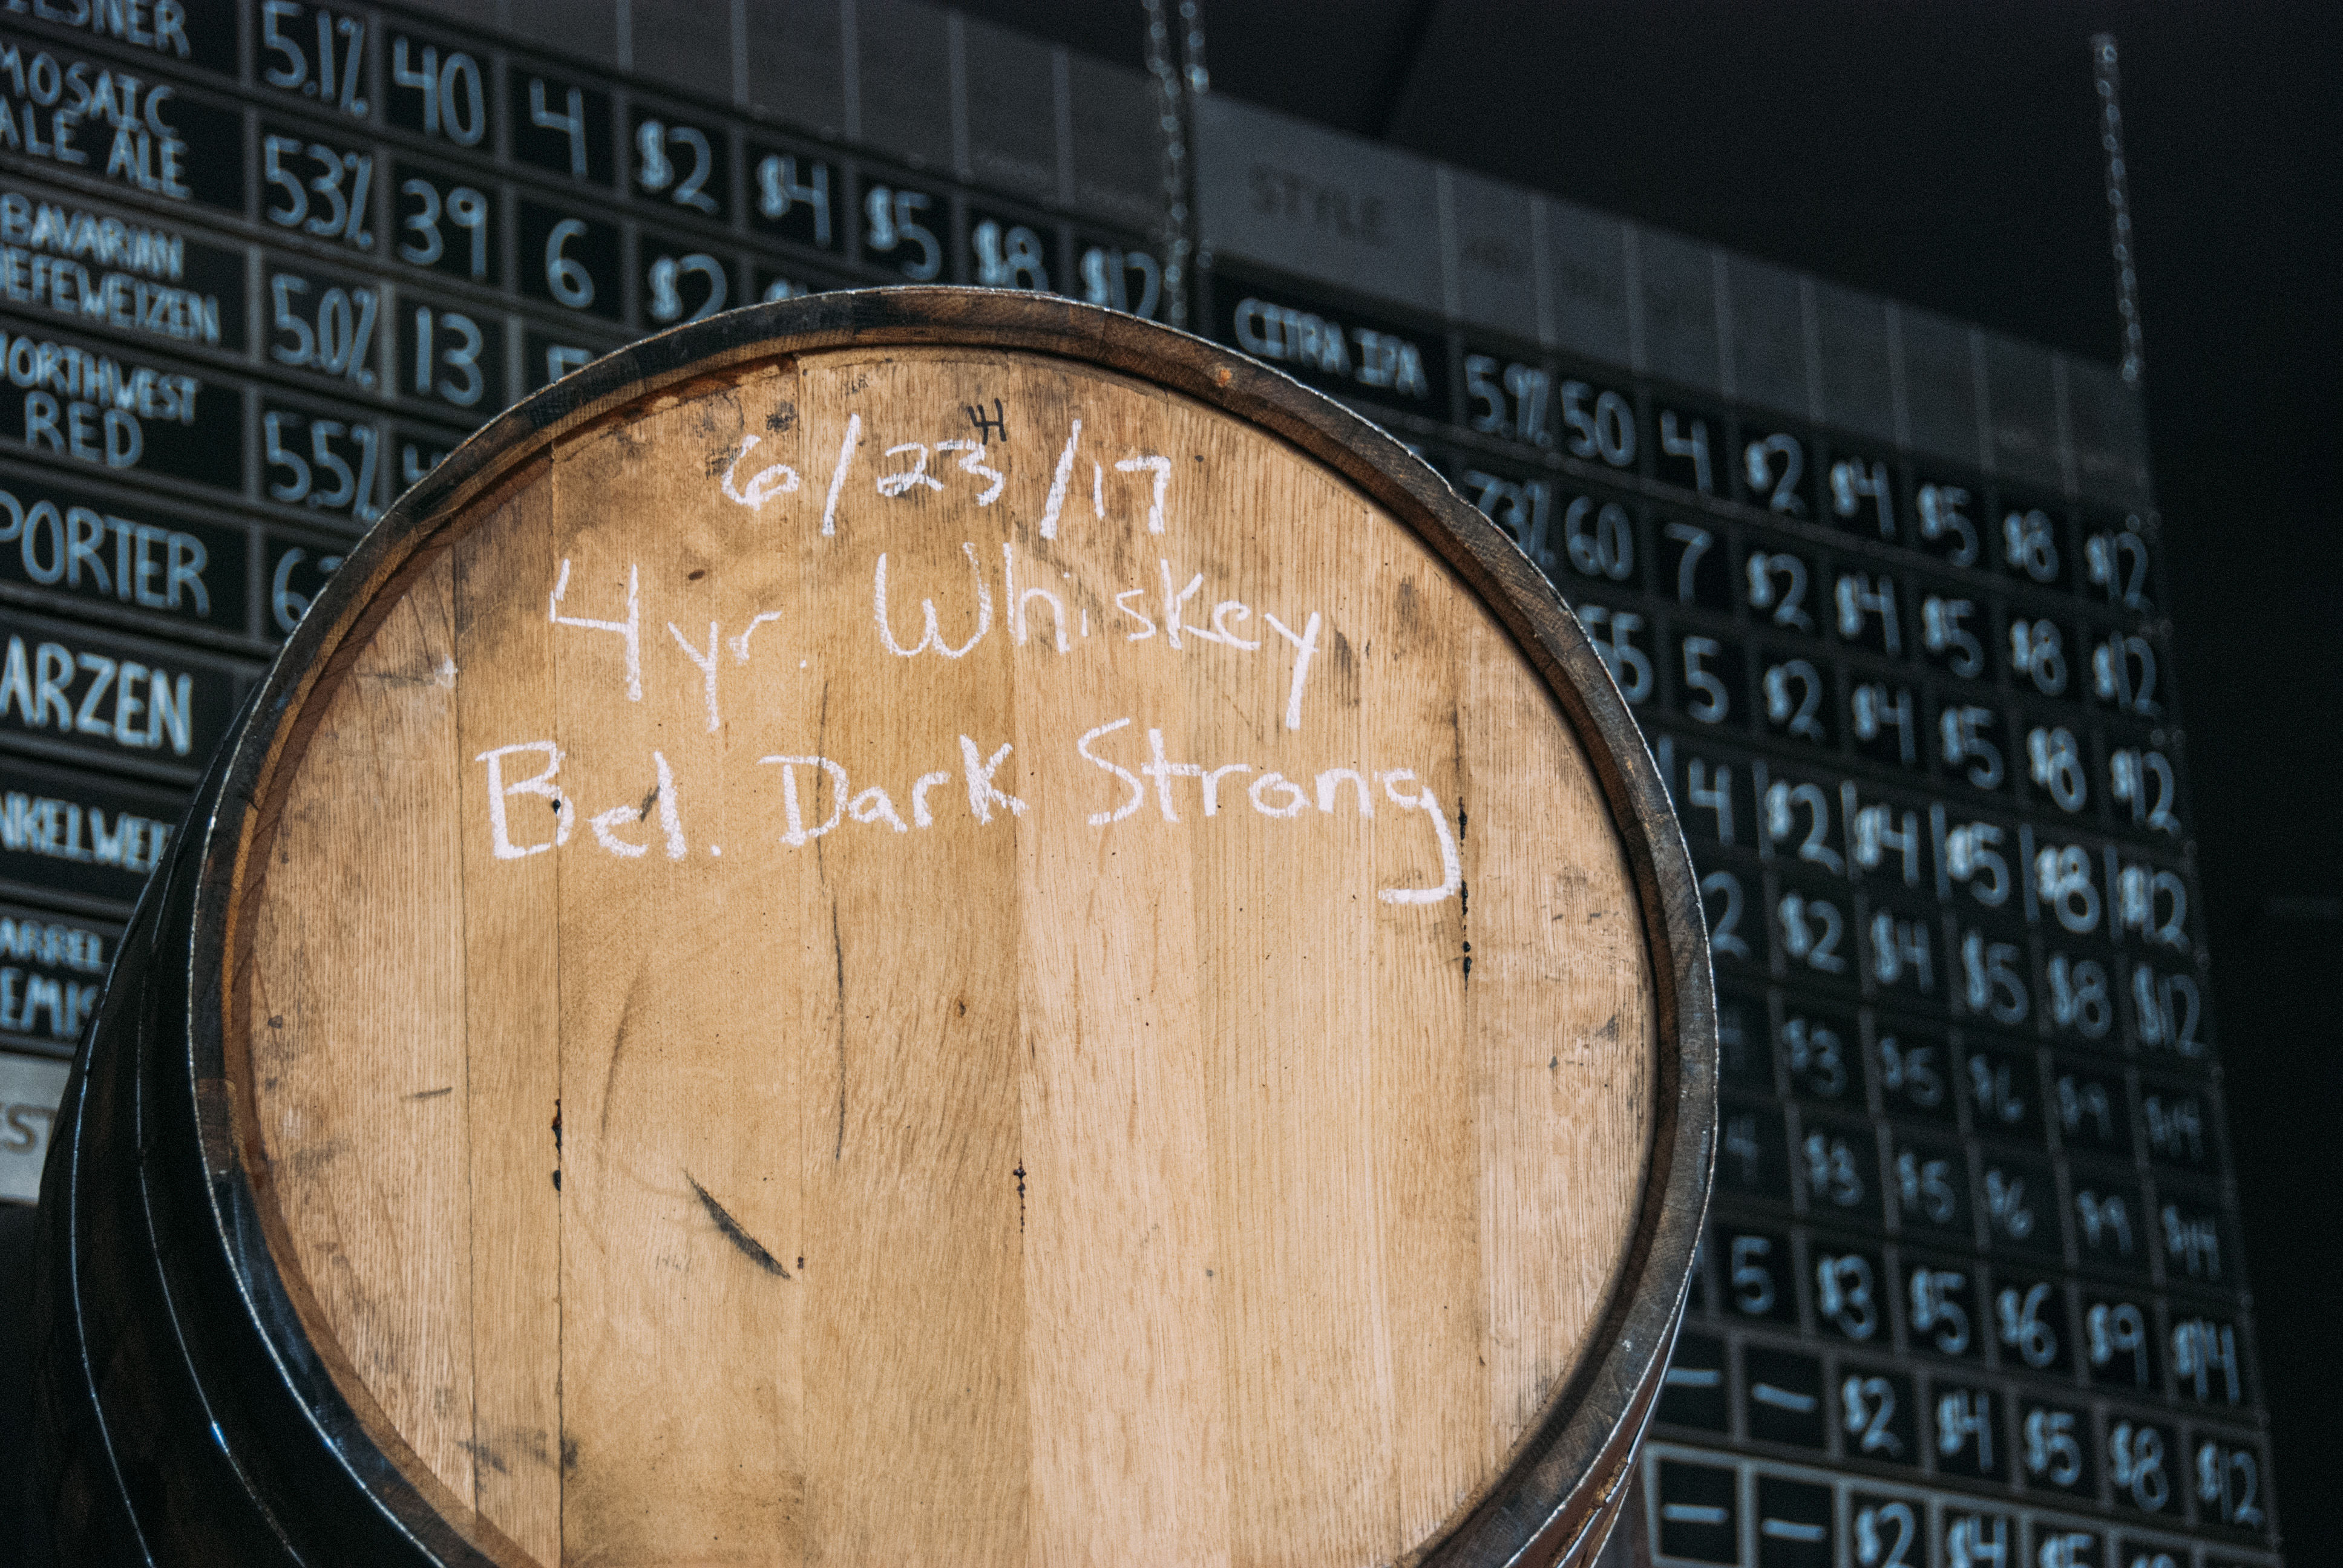 5.1% 40 4 $2 $4 $5 $8 $12
MOSAIC
ALE ALE
5.3% 39 6 $2
BAVARIAN
5.0% 13
RED
5.5%
PORTER
6/23/17
4 yr. Whiskey
Bel. Dark Strong
STYLE
CITRA IPA 5.9% 50 4 $2 $4 $5 $8 $12
60 7 $2 $4 $5 $8 $12
5 $2 $4 $5 $8 $12
4 $2 $4 $5 $8 $12
2 $2 $4 $5 $8 $12
$3 $5 $6 $9 $14
4 $3 $5 $6 $9 $14
5 $3 $5 $6 $9 $14
— — $2 $4 $5 $8 $12
— — $2 $4 $5